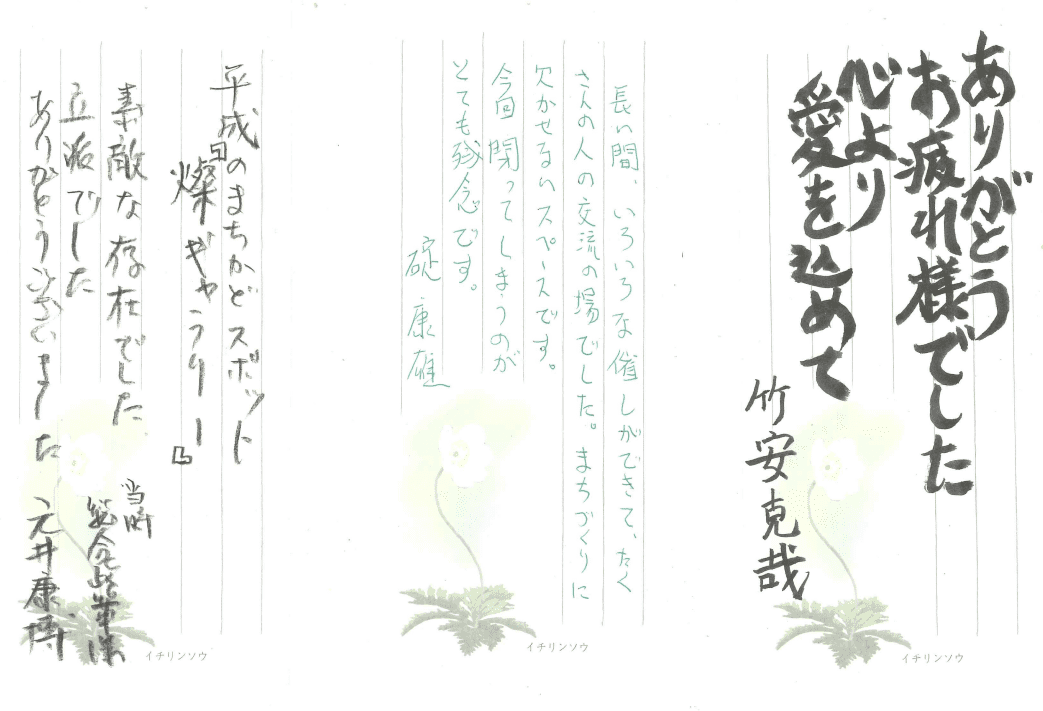 ありがとう
お疲れ様でした
心より
愛を込めて
竹安克哉
イチリンソウ
長い間、いろいろな催しができて、たく
さんの人の交流の場でした。まちづくりに
欠かせないスペースです。
今回閉ってしまうのが
とても残念です。
碇康雄
イチリンソウ
平成のまちかどスポット
『燦ぎゃらりー』
素敵な存在でした
立派でした
ありがとうございました
当時
元井康博
イチリンソウ